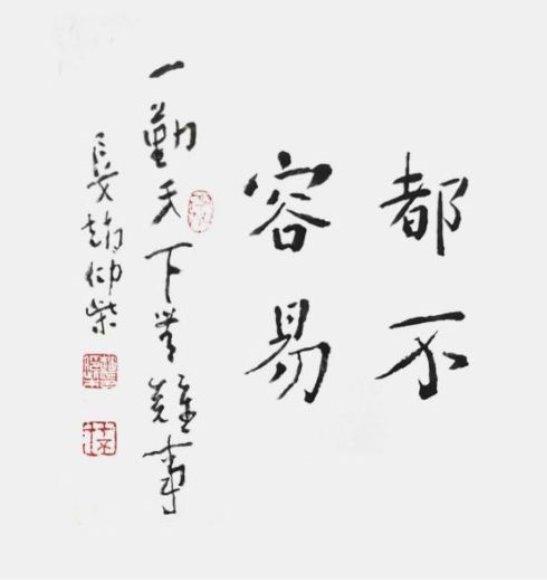 都不
容易
一勤天下无难事
长安赵仰柴